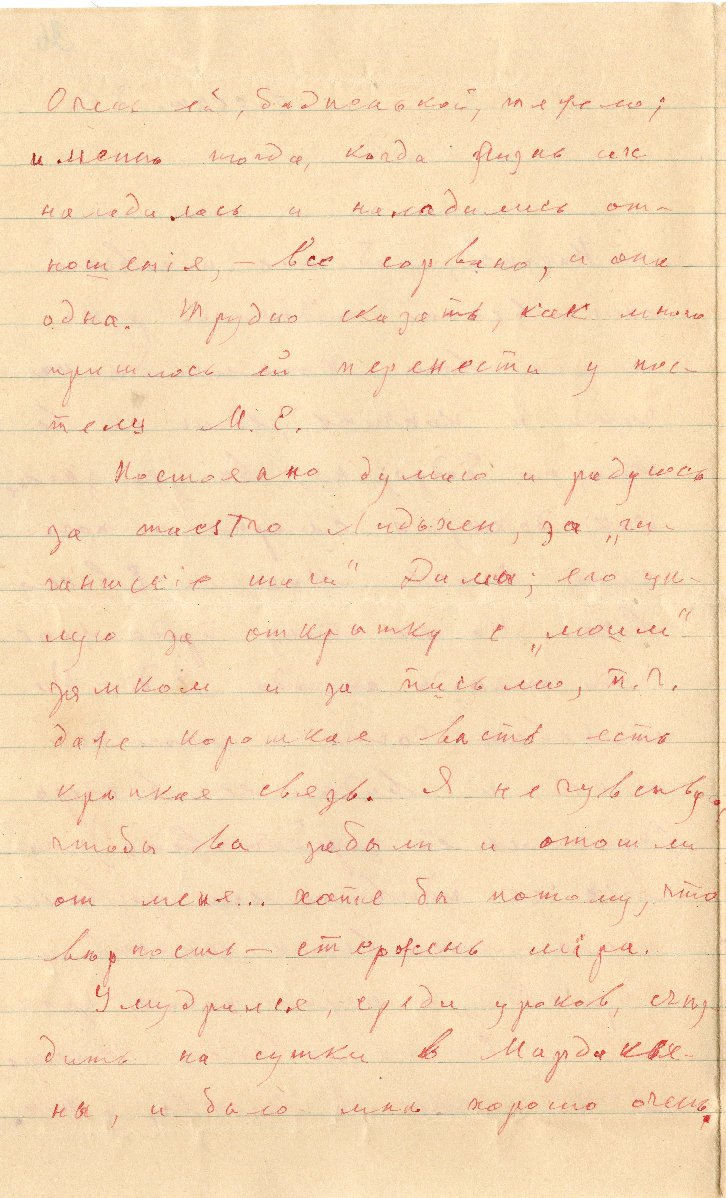 Очень ей, бѣдненькой, тяжело;
именно тогда, когда жизнь ихъ
наладилась и наладились от-
ношенія, — все сорвано, и она
одна. Трудно сказать, как много
пришлось ей перенести у пос-
тели М. Е.
Постоянно думаю и радуюсь
за maestro Лидьхен, за „ги-
гантскіе шаги“ Димы; его цѣ-
лую за открытку с „моим“
замком и за письмо, т. ч.
даже короткая вѣсть есть
крѣпкая связь. Я не чувствую,
чтобы вы забыли и отошли
от меня... хотя бы потому, что
вѣрность — стержень міра.
Умудрился, среди уроков, съѣз-
дить на сутки в Мардакья-
ны, и было мнѣ хорошо очень.